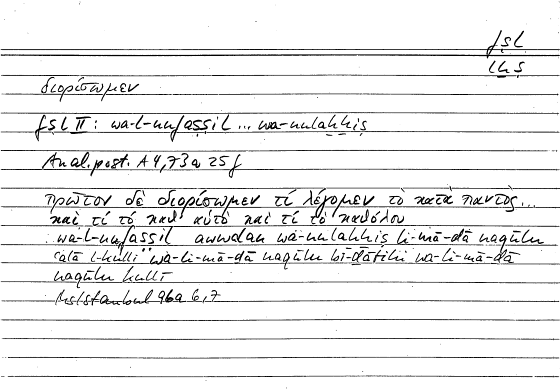 fṣl
lḫṣ
διορίσωμεν
fṣl II : wa-l-nufaṣṣil ... wa-nulaḫḫiṣ
Anal. post. A 4, 73 a 25 f
πρῶτον δὲ διορίσωμεν τί λέγομεν τὸ κατὰ παντὸς...
καὶ τί τὸ καθ᾽ αὑτὸ καὶ τί τὸ καθόλου
wa-l-nufaṣṣil awwalan wa-nulaḫḫiṣ li-mā-ḏā naqūlu
ʿalā l-kulli wa-li-mā-ḏā naqūlu bi-ḏātihi wa-li-mā-ḏā
naqūlu kullī
Hs Istanbul 96a 6,7